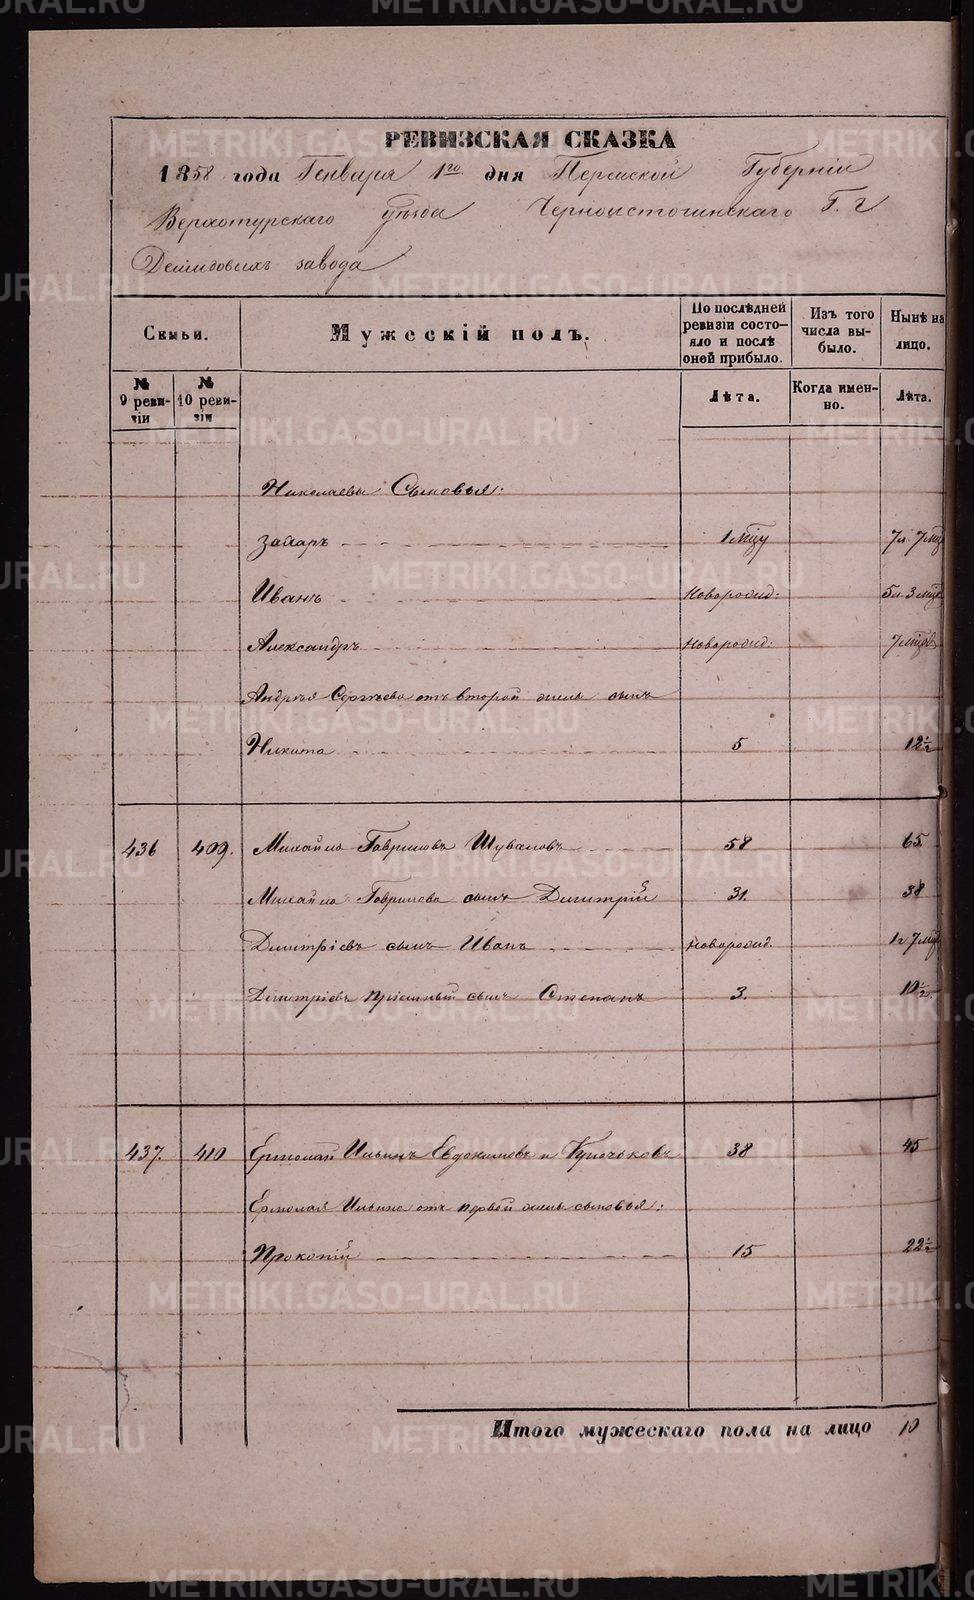 РЕВИЗСКАЯ СКАЗКА
1858 года Генваря 1го дня Пермской Губерніи
Верхотурскаго уѣзда Черноисточинскаго Г. г
Демидовыхъ завода
Семьи.
Мужескій полъ.
По послѣдней ревизіи состояло и послѣ оной прибыло.
Изъ того числа выбыло.
Нынѣ на лицо.
№ 9 ревизіи
№ 10 ревизіи
Лѣта.
Когда именно.
Лѣта.
Николаевы Сыновья:
Захаръ 1 мцу 7 л. 7 мц
Иванъ Новорожд: 5 л. 3 мцa
Александръ Новорожд: 7 мцовъ
Андрея Сергѣева отъ второй жены сынъ
Никита 5 12 1/2
436 409. Михайло Гавриловъ Шуваловъ 58 65.
Михайла Гаврилова сынъ Дмитрій 31. 38
Дмитріевъ сынъ Иванъ Новорожд. 1 г 7 мц
Дмитріевъ пріемный сынъ Степанъ 3. 10 1/2.
437. 410 Ермолай Ильинъ Евдокимовъ и Курочковъ 38 45
Ермолая Ильина отъ первой жены сыновья:
Прокопій 15 22 1/2
Итого мужескаго пола на лицо 10
METRIKI.GASO-URAL.RU